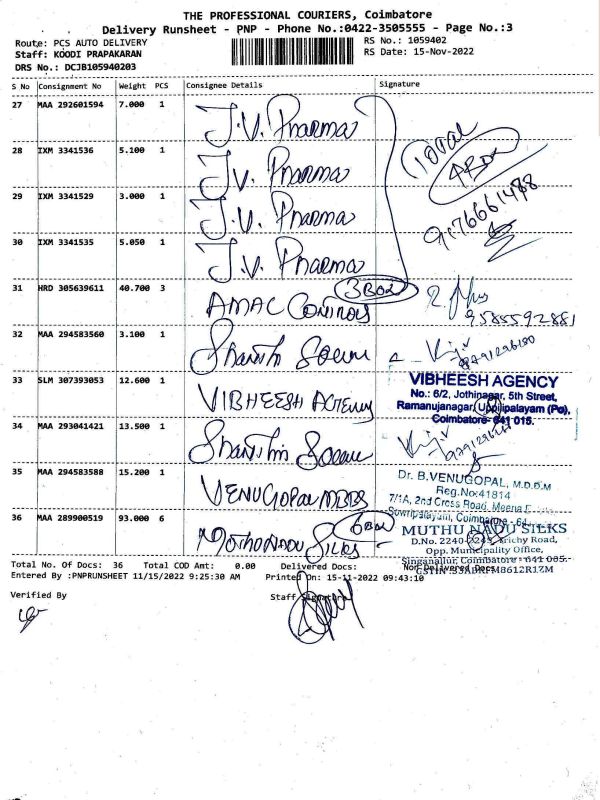 THE PROFESSIONAL COURIERS, Coimbatore
Delivery Runsheet - PNP - Phone No.:0422-3505555 - Page No.:3
Route: PCS AUTO DELIVERY
RS No.: 1059402
Staff: KOODI PRAPAKARAN
RS Date: 15-Nov-2022
DRS No.: DCJB105940203
S No Consignment No Weight PCS Consignee Details Signature
27 MAA 292601594 7.000 1 J.V. Pharma
Total 4 Box
28 IXM 3341536 5.100 1 J.V. Pharma
29 IXM 3341529 3.000 1 J.V. Pharma
9176661488
30 IXM 3341535 5.050 1 J.V. Pharma
31 HRD 305639611 40.700 3 AMAC Controls 3 Box
9585592881
32 MAA 294583560 3.100 1 Shanthi
33 SLM 307393053 12.600 1 VIBHEESH AGENCY
VIBHEESH AGENCY
No.: 6/2, Jothinagar, 5th Street,
Ramanujanagar, Uppilipalayam (Po),
Coimbatore- 641 015.
34 MAA 293041421 13.500 1 Shanthi
35 MAA 294583588 15.200 1 VENUGOPAL MBBS
Dr. B.VENUGOPAL, M.D.D.M
Reg.No:41814
7/1A, 2nd Cross Road, Meena E
Sowripalayam, Coimbatore
36 MAA 289900519 93.000 6 MUTHUNADU SILKS 6 Box
MUTHU NADU SILKS
D.No. 2240 Trichy Road,
Opp. Municipality Office,
Singanallur, Coimbatore - 641 005.
Total No. Of Docs: 36 Total COD Amt: 0.00 Delivered Docs: Non Delivered Docs:
Entered By :PNPRUNSHEET 11/15/2022 9:25:30 AM Printed On: 15-11-2022 09:43:10
Verified By Staff Signature